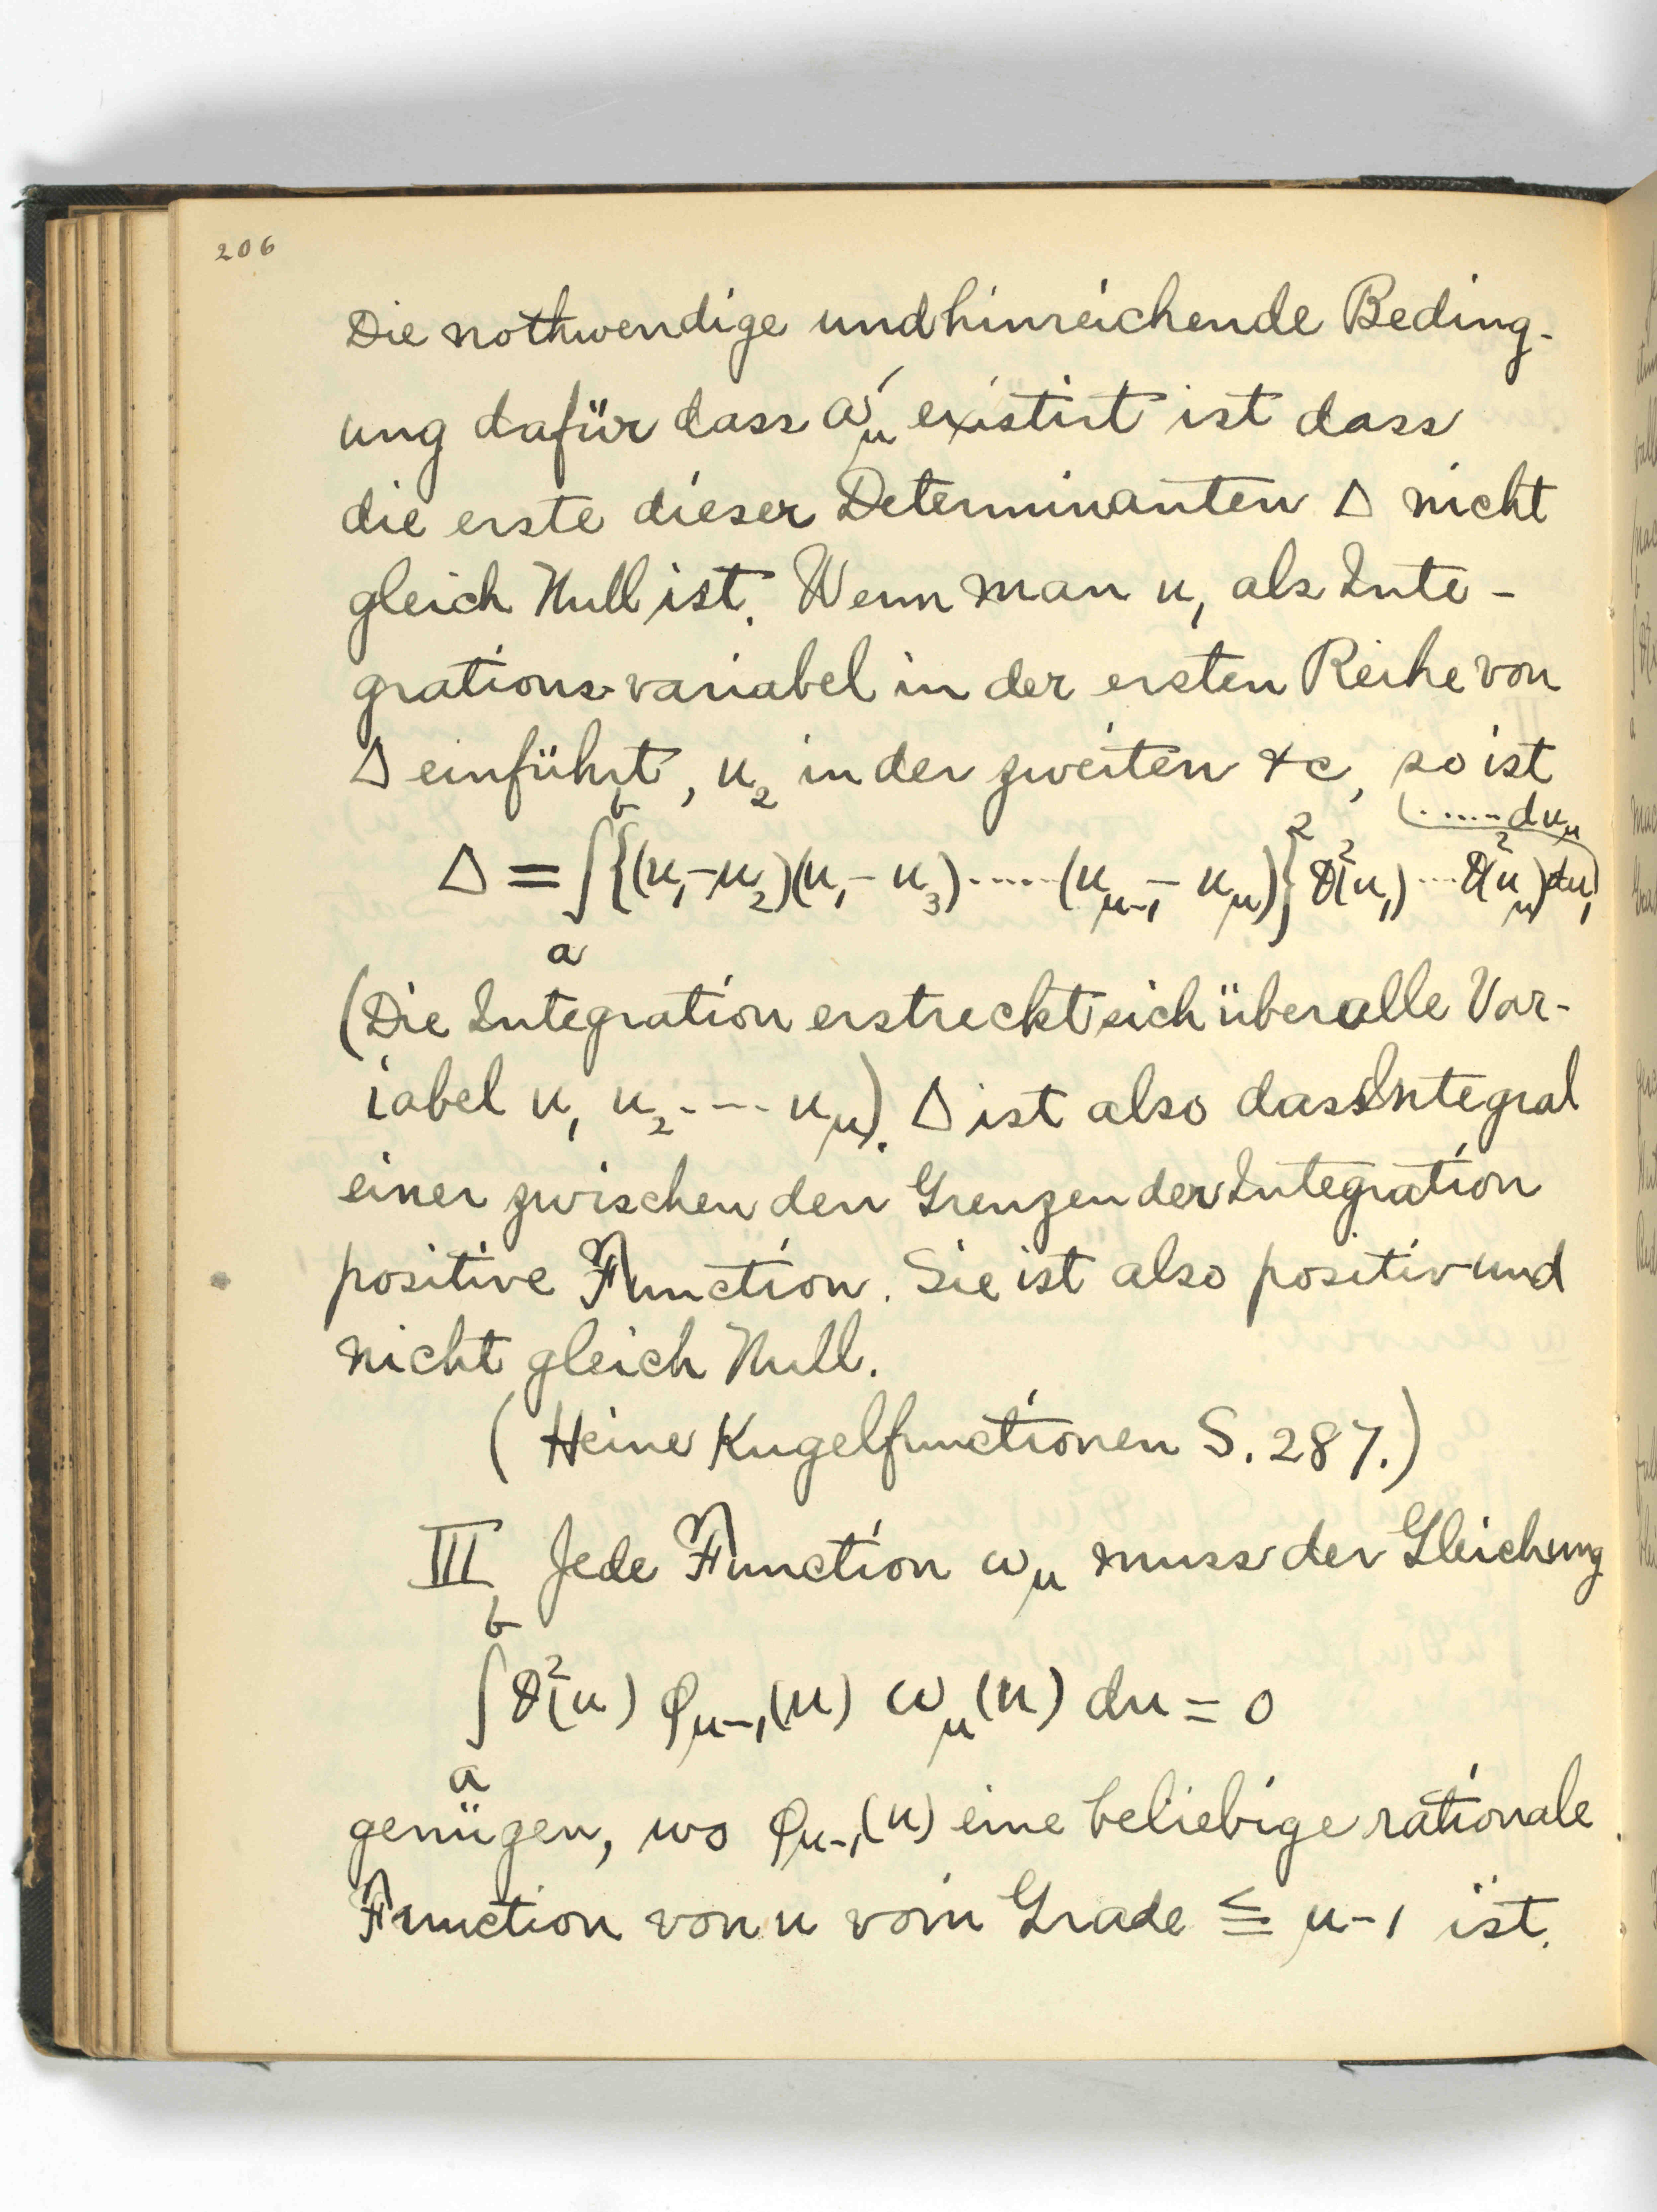 206
Die nothwendige und hinreichende Beding-
ung dafür dass a'_μ existirt ist dass
die erste dieser Determinanten Δ nicht
gleich Null ist. Wenn man u₁ als Inte-
grations-variabel in der ersten Reihe von
Δ einführt, u₂ in der zweiten &c, so ist
Δ = ∫_a^b {(u₁-u₂)(u₁-u₃)·····(u_{μ-1}-u_μ)}² ϑ²(u₁)···ϑ²(u_μ)du₁ (·····du_μ)
(Die Integration erstreckt sich über alle Var-
iabel u₁ u₂---- u_μ). Δ ist also dass Integral
einer zwischen den Grenzen der Integration
positive Function. Sie ist also positiv und
nicht gleich Null.
(Heine Kugelfunctionen S. 287.)
III Jede Function ω_μ muss der Gleichung
∫_a^b ϑ²(u) φ_{μ-1}(u) ω_μ(u) du = 0
genügen, wo φ_{μ-1}(u) eine beliebige rationale
Function von u vom Grade ≦ μ-1 ist.